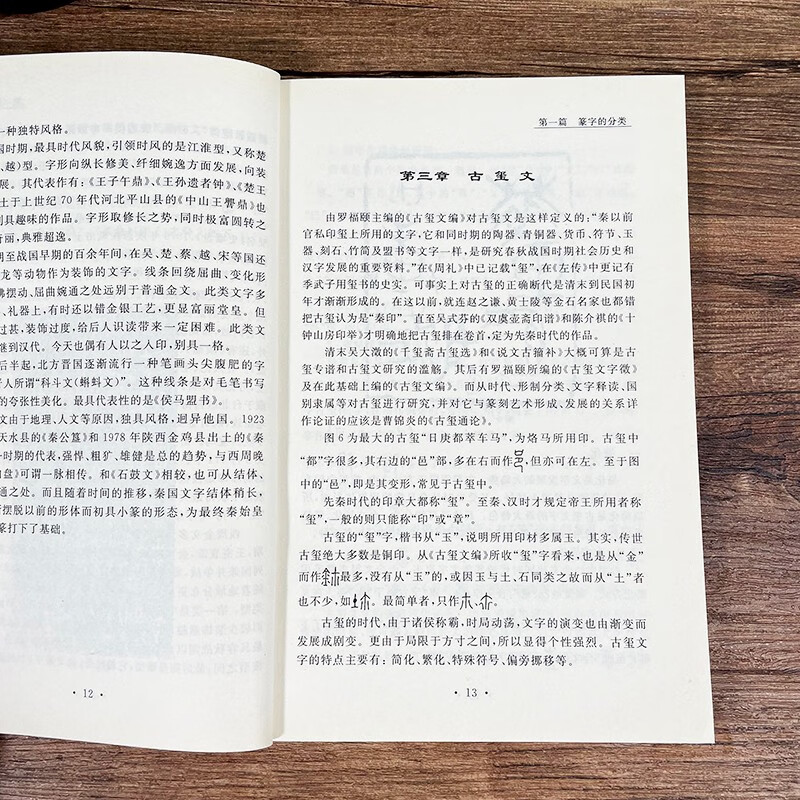 一种独特风格。
国时期，最具时代风貌，引领时风的是江淮型，又称楚
越)型。字形向纵长修美、纤细婉逸方面发展，向装
展。其代表作有：《王子午鼎》、《王孙遗者钟》、《楚王
土于上世纪70年代河北平山县的《中山王嚳鼎》也
别具趣味的作品。字形取修长之势，同时极富圆转之
丽，典雅超逸。
期至战国早期的百余年间，在吴、楚、蔡、越、宋等国还
龙等动物作为装饰的文字。线条回绕屈曲、变化形
摆动、屈曲婉通之处远别于普通金文。此类文字多
、礼器上，有时还以错金银工艺，更显富丽堂皇。但
过甚，装饰过度，给后人识读带来一定困难。此类文
继到汉代。今天也偶有人以之入印，别具一格。
后半起，北方晋国逐渐流行一种笔画头尖腹肥的字
人所谓“科斗文(蝌蚪文)”。这种线条是对毛笔书写
的夸张性美化。最具代表性的是《侯马盟书》。
文由于地理、人文等原因，独具风格，迥异他国。1923
天水县的《秦公簋》和1978年陕西金鸡县出土的《秦
一时期的代表，强悍、粗犷、雄健是总的趋势，与西周晚
盘》可谓一脉相传。和《石鼓文》相较，也可从结体、
通之处。而且随着时间的推移，秦国文字结体稍长，
摆脱以前的形体而初具小篆的形态，为最终秦始皇
篆打下了基础。
· 12 ·
第一篇 篆字的分类
第三章 古玺文
由罗福颐主编的《古玺文编》对古玺文是这样定义的：“秦以前
官私印玺上所用的文字，它和同时期的陶器、青铜器、货币、符节、玉
器、刻石、竹简及盟书等文字一样，是研究春秋战国时期社会历史和
汉字发展的重要资料。”在《周礼》中已记载“玺”，在《左传》中更记有
季武子用玺书的史实。可事实上对古玺的正确断代是清末到民国初
年才渐渐形成的。在这以前，就连赵之谦、黄士陵等金石名家也都错
把古玺认为是“秦印”。直至吴式芬的《双虞壶斋印谱》和陈介祺的《十
钟山房印举》才明确地把古玺排在卷首，定为先秦时代的作品。
清末吴大澂的《千玺斋古玺选》和《说文古籀补》大概可算是古
玺专谱和古玺文研究的滥觞。其后有罗福颐所编的《古玺文字徵》
及在此基础上编的《古玺文编》。而从时代、形制分类、文字释读、国
别隶属等对古玺进行研究，并对它与篆刻艺术形成、发展的关系详
作论证的应该是曹锦炎的《古玺通论》。
图6为最大的古玺“日庚都萃车马”，为烙马所用印。古玺中
“都”字很多，其右边的“邑”部，多在右而作，但亦可在左。至于图
中的“邑”，即是其变形，常见于古玺中。
先秦时代的印章大都称“玺”。至秦、汉时才规定帝王所用者称
“玺”，一般的则只能称“印”或“章”。
古玺的“玺”字，楷书从“玉”，说明所用印材多属玉。其实，传世
古玺绝大多数是铜印。从《古玺文编》所收“玺”字看来，也是从“金”
而作最多，没有从“玉”的，或因玉与土、石同类之故而从“土”者
也不少，如。最简单者，只作、。
古玺的时代，由于诸侯称霸，时局动荡，文字的演变也由渐变而
发展成剧变。更由于局限于方寸之间，所以显得个性强烈。古玺文
字的特点主要有：简化、繁化、特殊符号、偏旁挪移等。
· 13 ·